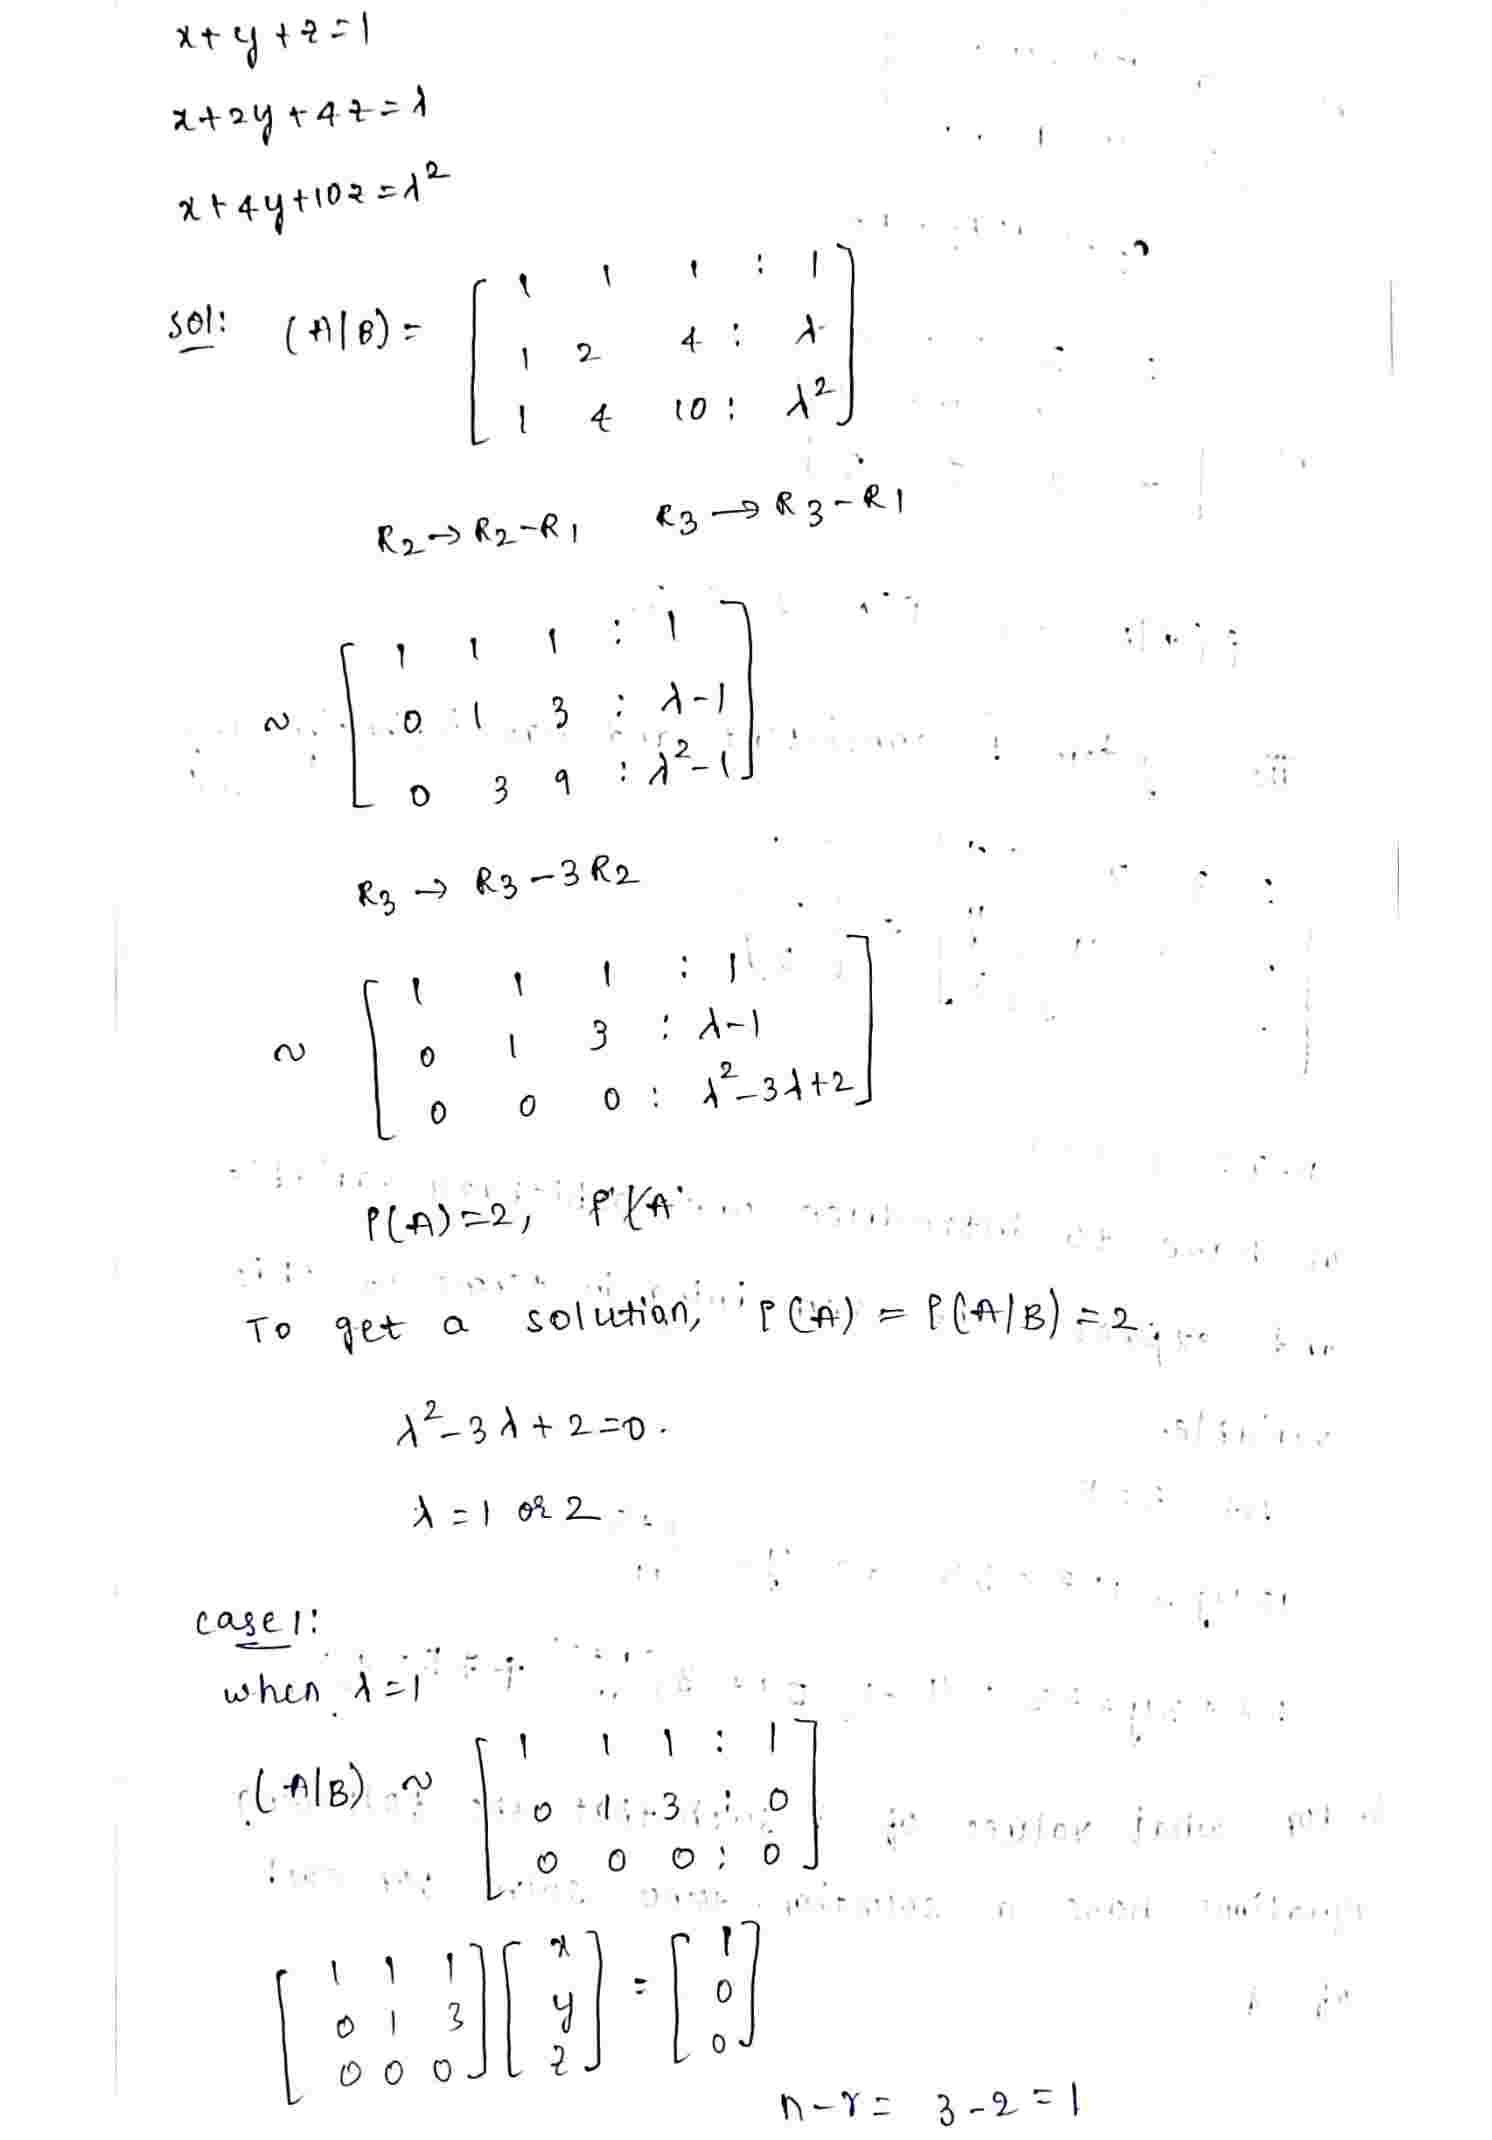 x+y+z=1
x+2y+4z=λ
x+4y+10z=λ²
Sol: (A|B)= [ 1 1 1 : 1
1 2 4 : λ
1 4 10 : λ² ]
R2→R2-R1 R3→R3-R1
~ [ 1 1 1 : 1
0 1 3 : λ-1
0 3 9 : λ²-1 ]
R3→R3-3R2
~ [ 1 1 1 : 1
0 1 3 : λ-1
0 0 0 : λ²-3λ+2 ]
ρ(A)=2,
To get a solution, ρ(A) = ρ(A/B) = 2.
λ²-3λ+2=0.
λ=1 or 2
case1:
when λ=1
(A|B) ~ [ 1 1 1 : 1
0 1 3 : 0
0 0 0 : 0 ]
[ 1 1 1 ] [ x ] = [ 1 ]
[ 0 1 3 ] [ y ] [ 0 ]
[ 0 0 0 ] [ z ] [ 0 ]
n-r= 3-2=1